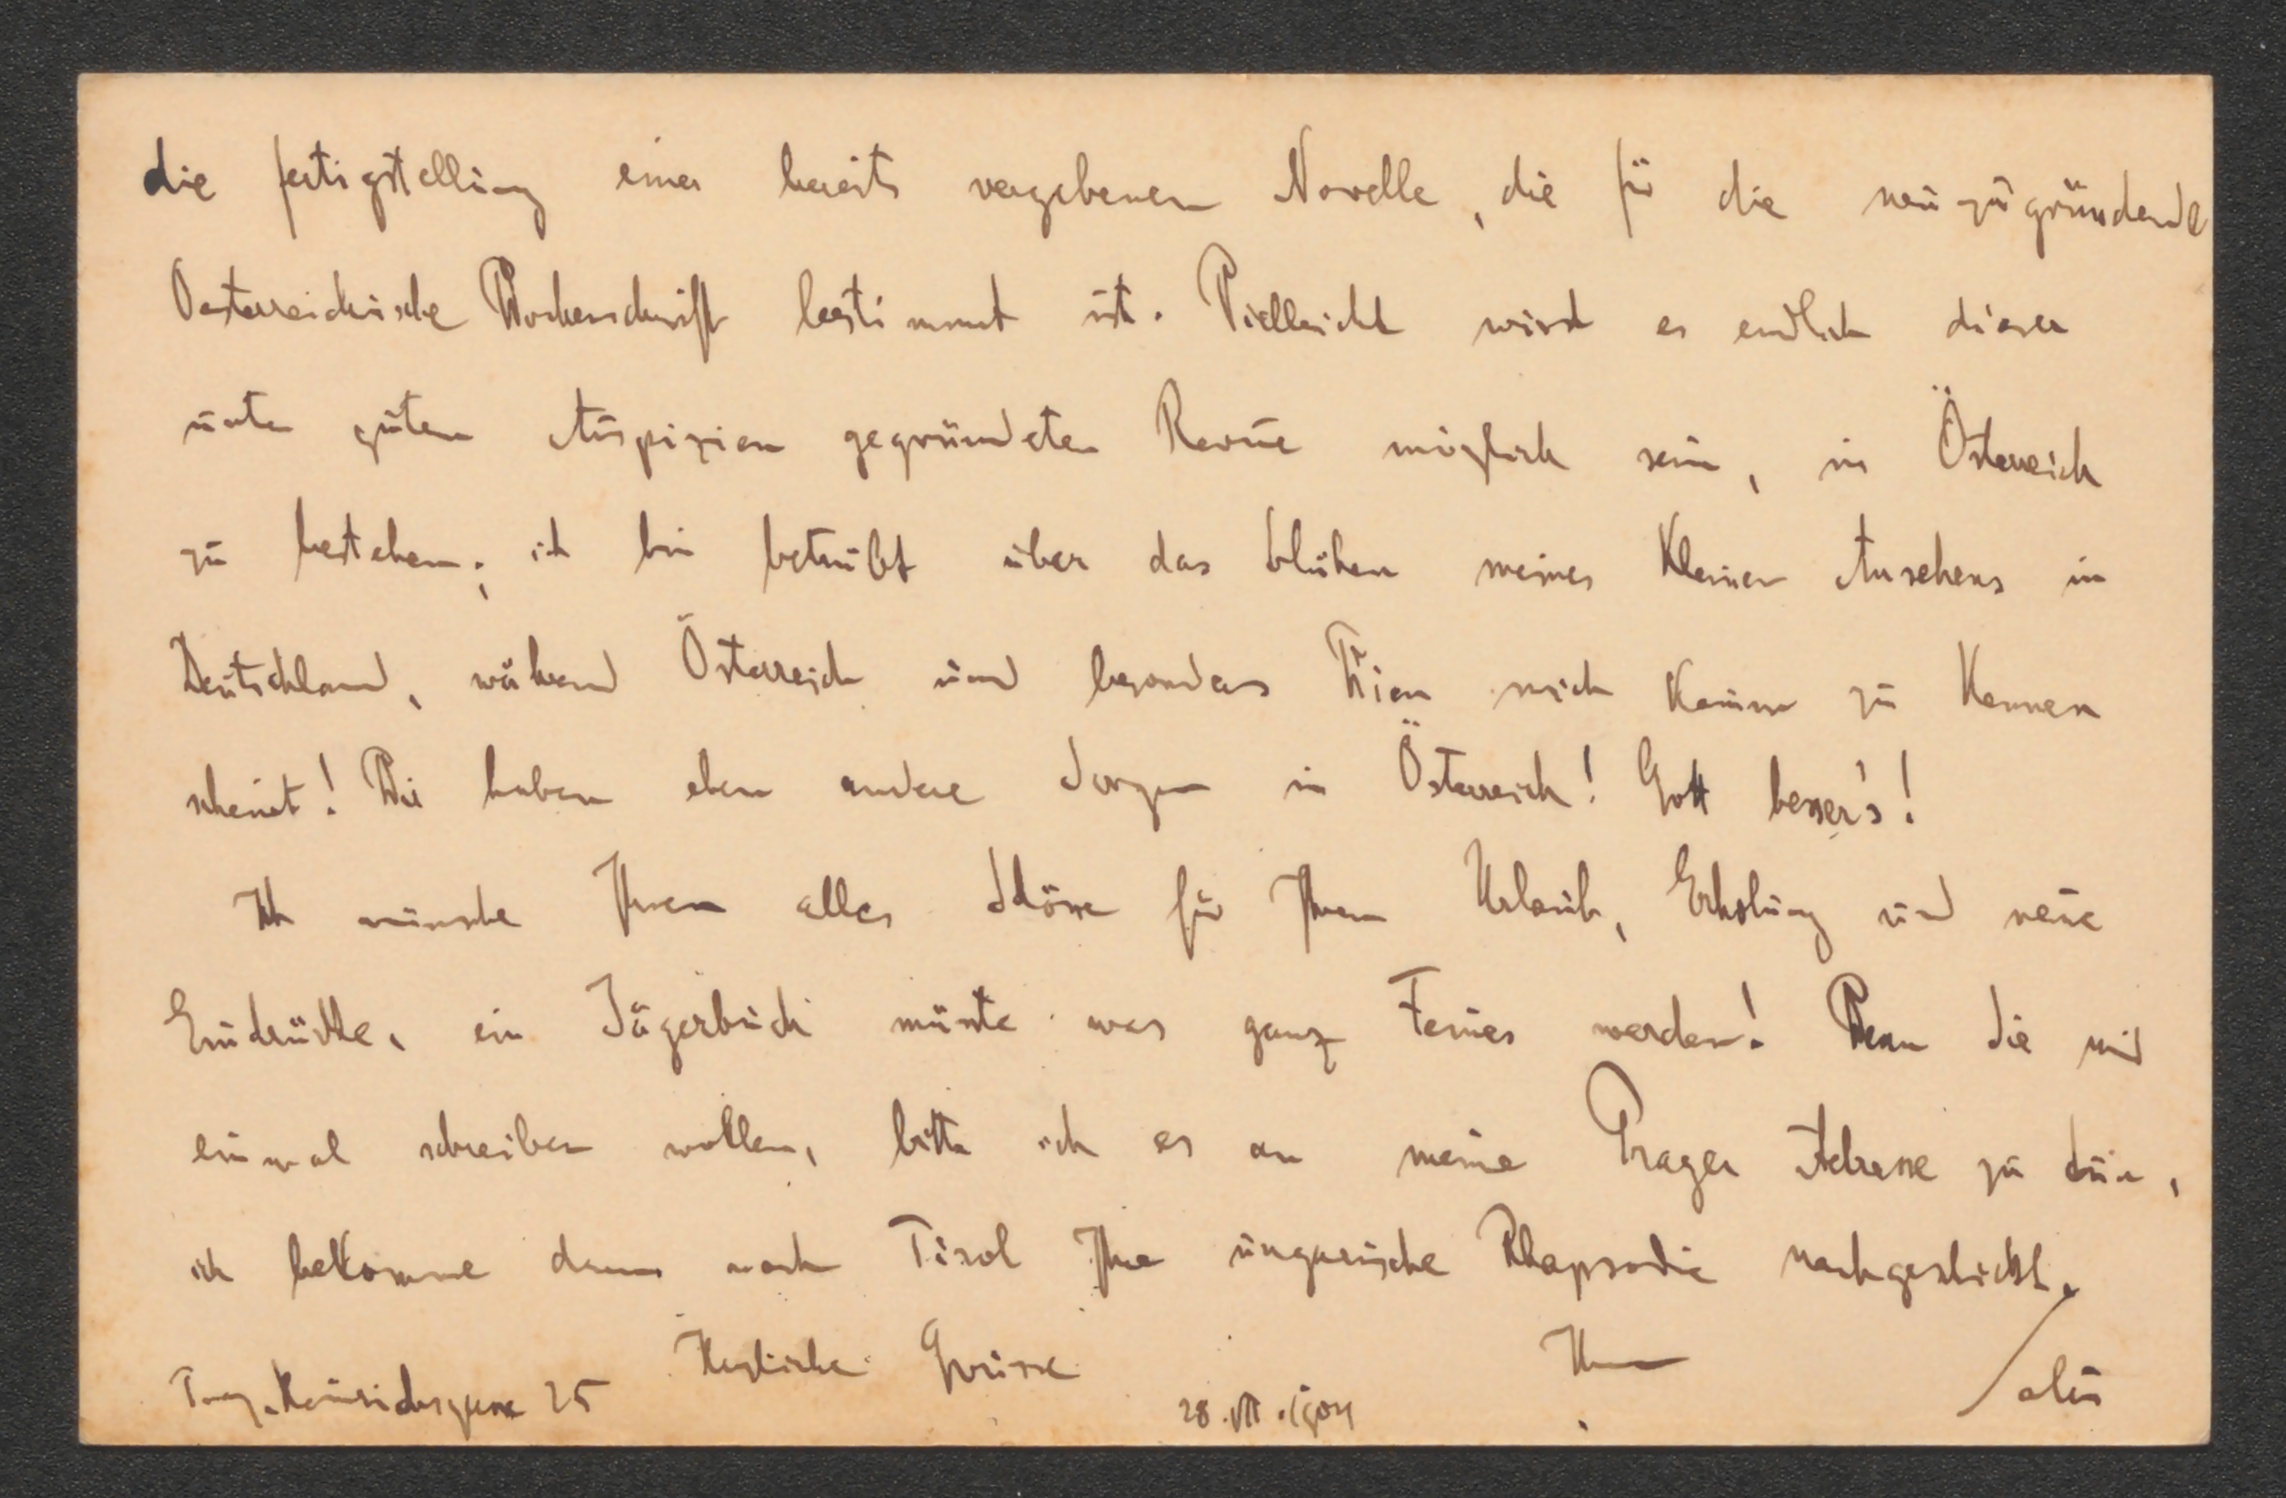 die fertigstellung einer bereits vergebenen Novelle, die für die neuzugründende
Oesterreichische Wochenschrift bestimmt ist. Vielleicht wird es endlich dieser
unter guten Auspizien gegründeten Revue möglich sein, in Österreich
zu bestehen; ich bin betrübt über das blühen meines kleinen Ansehens in
Deutschland, während Österreich und besonders Wien mich kaum zu kennen
scheint! Wir haben eben andere Sorgen in Österreich! Gott besser's!
Ich wünsche Ihnen alles Schöne für Ihren Urlaub, Erholung und neue
Eindrücke, ein Jägerbuch müsste was ganz Feines werden! Wenn Sie mir
einmal schreiben wollen, bitte ich es an meine Prager Adresse zu tun,
ich bekomme dann nach Tirol Ihre ungarische Rhapsodie nachgeschickt.
Herzliche Grüsse Ihr
Prag. 25 28.VII.1904